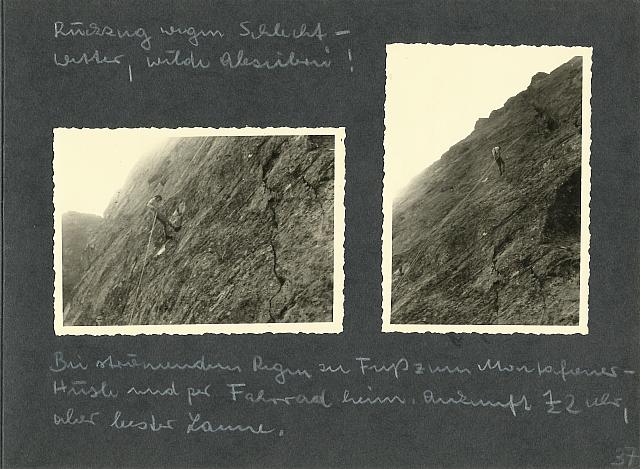 Rückzug wegen Schlecht-
wetter, wilde Abseilerei!
Bei strömendem Regen zu Fuß zum Montafoner-
Hüsle und per Fahrrad heim. Ankunft ½2 Uhr,
aber bester Laune.
37